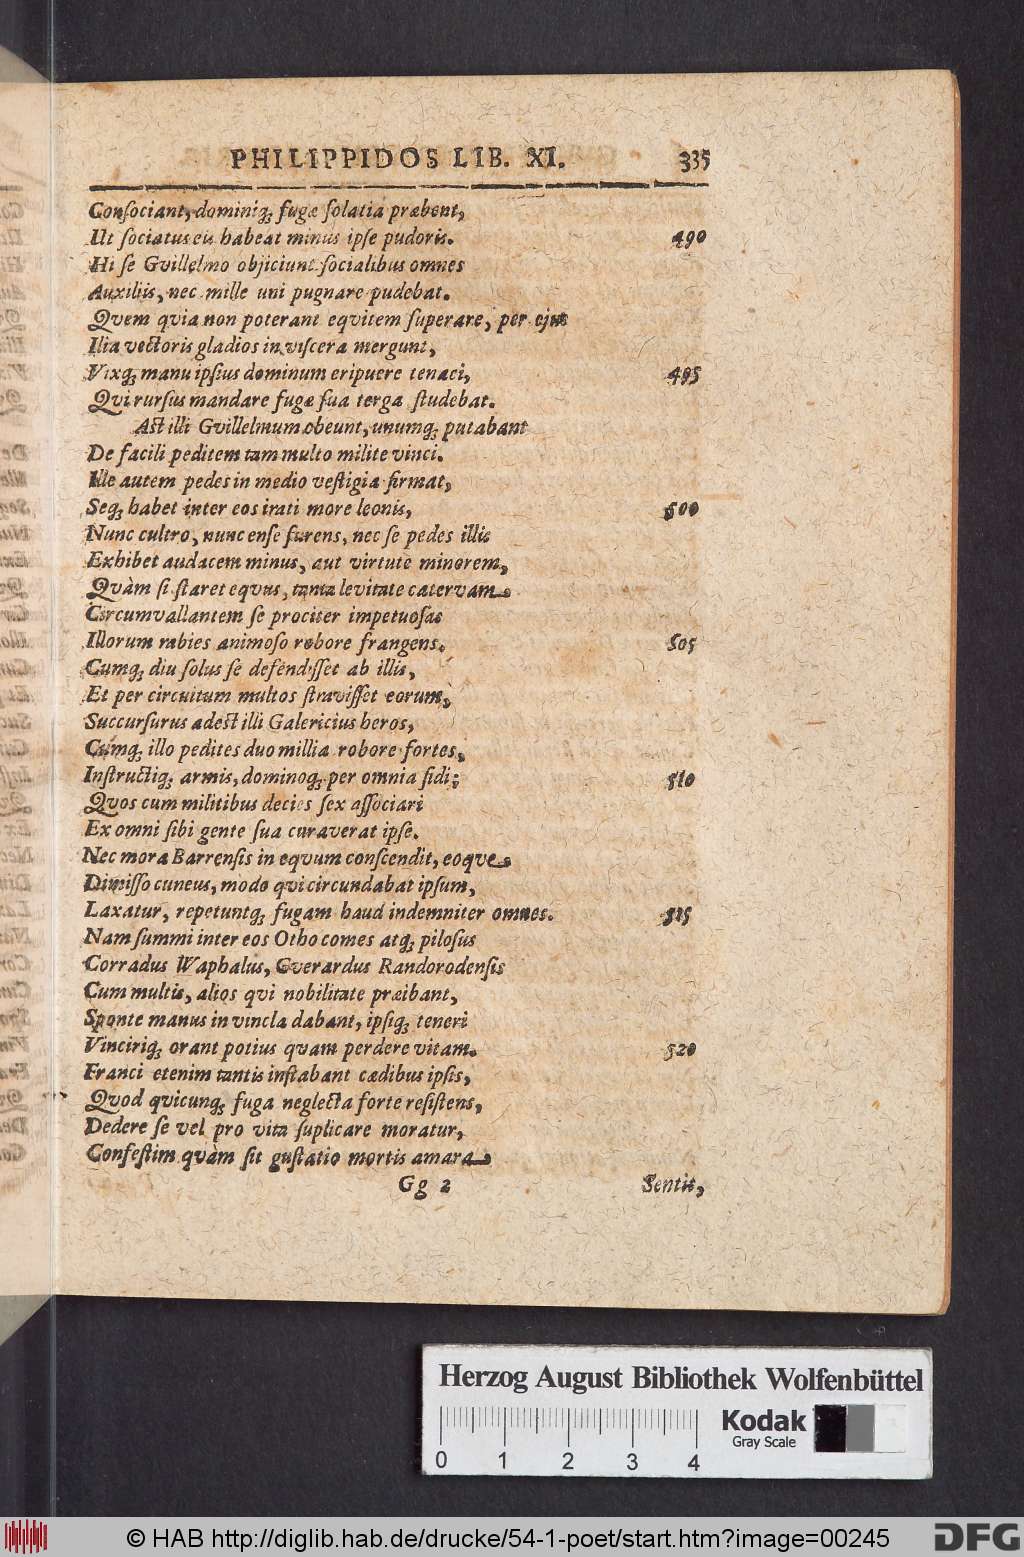 PHILIPPIDOS LIB. XI. 335
Conſociant, dominiq; fugæ ſolatia præbent,
Ut ſociatus eis habeat minus ipſe pudoris. 490
Hi ſe Gvillelmo objiciunt ſocialibus omnes
Auxiliis, nec mille uni pugnare pudebat.
Qvem qvia non poterant eqvitem ſuperare, per ejus
Ilia vectoris gladios in viſcera mergunt,
Vixq; manu ipſius dominum eripuere tenaci, 495
Qvi rurſus mandare fugæ ſua terga ſtudebat.
Aſt illi Gvillelmum obeunt, unumq; putabant
De facili peditem tam multo milite vinci.
Ille autem pedes in medio veſtigia firmat,
Seq; habet inter eos irati more leonis, 500
Nunc cultro, nunc enſe furens, nec ſe pedes illis
Exhibet audacem minus, aut virtute minorem,
Qvàm ſi ſtaret eqvus, tanta levitate catervam
Circumvallantem ſe prociter impetuoſas
Illorum rabies animoſo robore frangens. 505
Cumq; diu ſolus ſe defendiſſet ab illis,
Et per circuitum multos ſtraviſſet eorum,
Succurſurus adeſt illi Galericius heros,
Cumq; illo pedites duo millia robore fortes,
Inſtructiq; armis, dominoq; per omnia fidi; 510
Qvos cum militibus decies ſex aſſociari
Ex omni ſibi gente ſua curaverat ipſe.
Nec mora Barrenſis in eqvum conſcendit, eoqve
Dimiſſo cuneus, modo qvi circundabat ipſum,
Laxatur, repetuntq; fugam haud indemniter omnes. 515
Nam ſummi inter eos Otho comes atq; piloſus
Corradus Waphalus, Gverardus Randorodenſis
Cum multis, alios qvi nobilitate præibant,
Sponte manus in vincla dabant, ipſiq; teneri
Vinciriq; orant potius qvam perdere vitam. 520
Franci etenim tantis inſtabant cædibus ipſis,
Qvod qvicunq; fuga neglecta forte reſiſtens,
Dedere ſe vel pro vita ſuplicare moratur,
Confeſtim qvàm ſit guſtatio mortis amara
Gg 2 Sentit,
Herzog August Bibliothek Wolfenbüttel
Kodak
Gray Scale
0 1 2 3 4
© HAB http://diglib.hab.de/drucke/54-1-poet/start.htm?image=00245
DFG